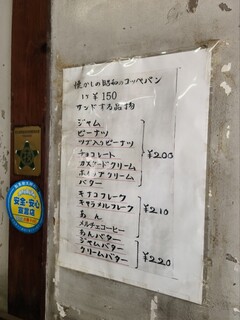 懐かしの昭和のコッペパン
1ケ ¥150
サンドする品物
ジャム
ピーナツ
ツブ入りピーナツ
チョコレート
カスタードクリーム
ホイップクリーム
バター
¥200
キナコフレーク
キャラメルフレーク
あん
メルチェコーヒー
あんバター
¥210
ジャムバター
クリームバター
¥220
安全・安心